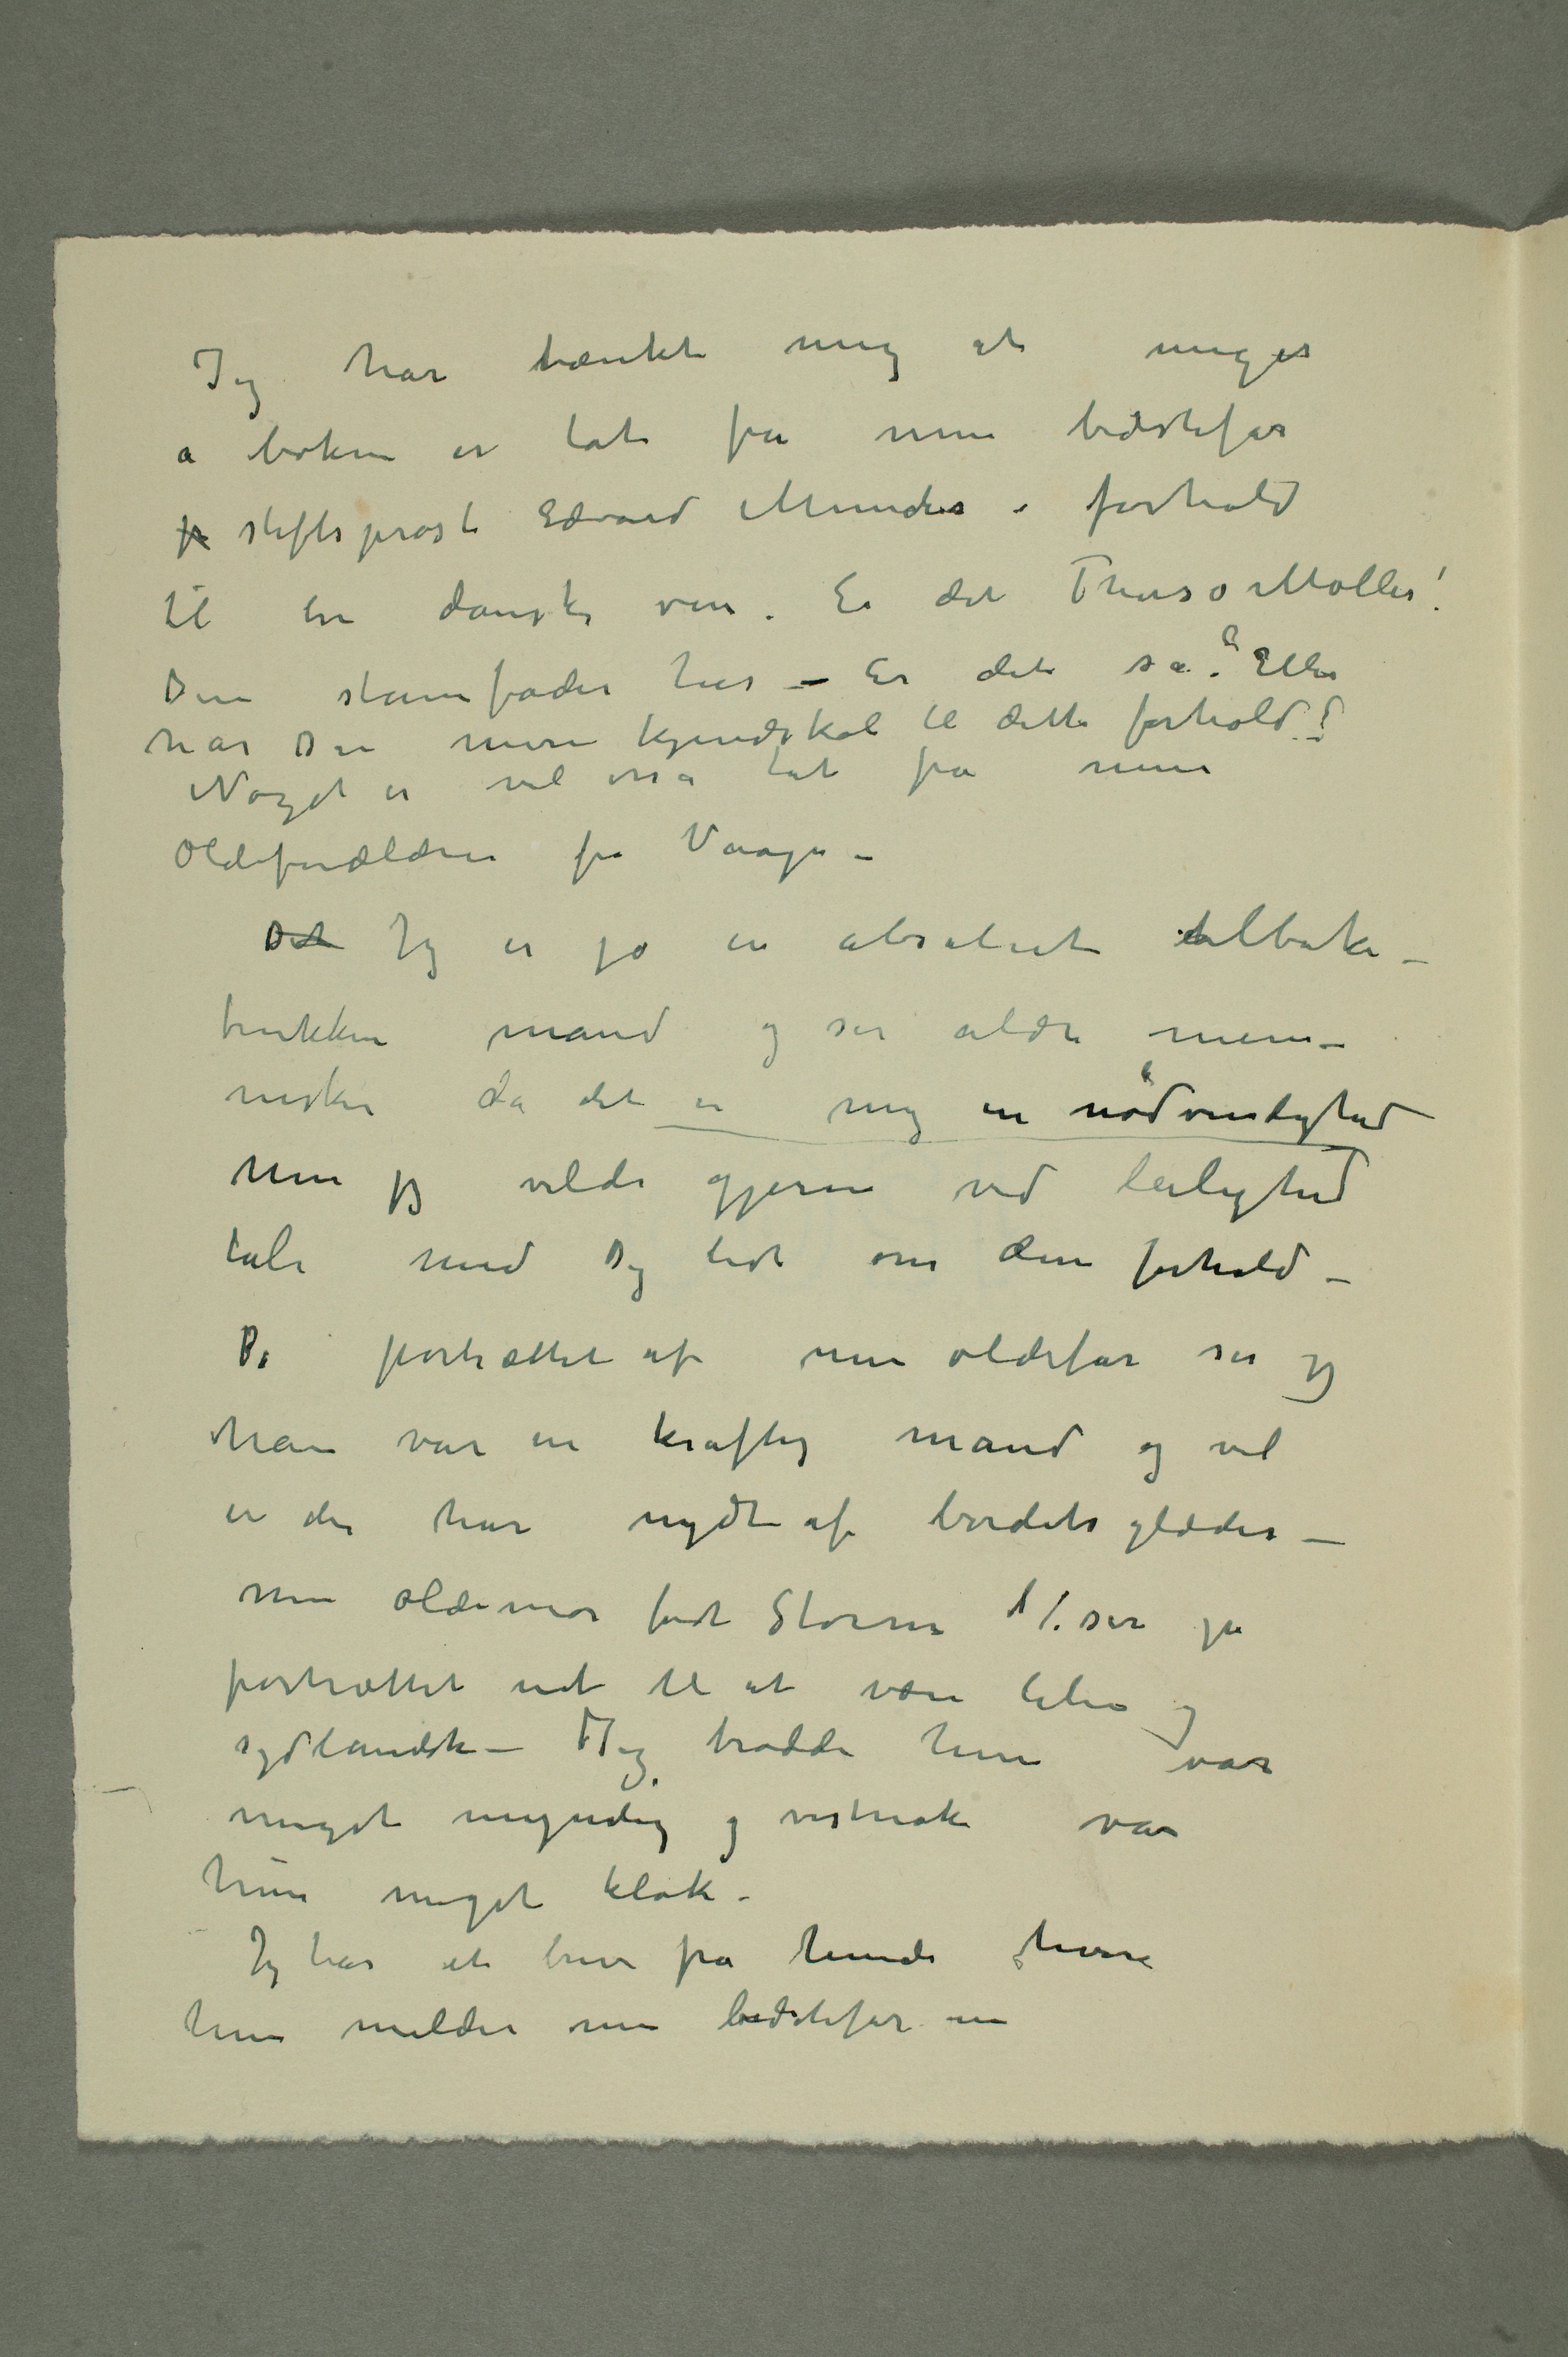 Jeg har tænkt mig at meget
a boken er tat fra min bedstefar
fr stiftsprost Edvard Munchs i forhold
til en dansk ven. Er det Thaisø Møller!
Din stamfader her – Er det sa? Eller
har Du mere kjendskab til dette forhold?
Noget er vel ossa tat fra mine
Oldeforældrene fra Vaage –
Det Jeg er jo en absolut tilbake-
trukken mand og ser aldri menn-
nesker da det er mig en nødvendighed
Men jeg vilde gjerne ved leilighed
tale med Dig lidt om dine forhold –
På portrættet af min oldefar ser jeg
han var en kraftig mand og vel
en der har nydt af bordets glæder –
min oldemor født Storm ser på
portrættet ud til at være liten og
sydlandsk – Jeg trodde hun var
meget myndig og vistnok var
hun meget klok –
Jeg har et brev fra hende hvori
hun melder min bedstefar om